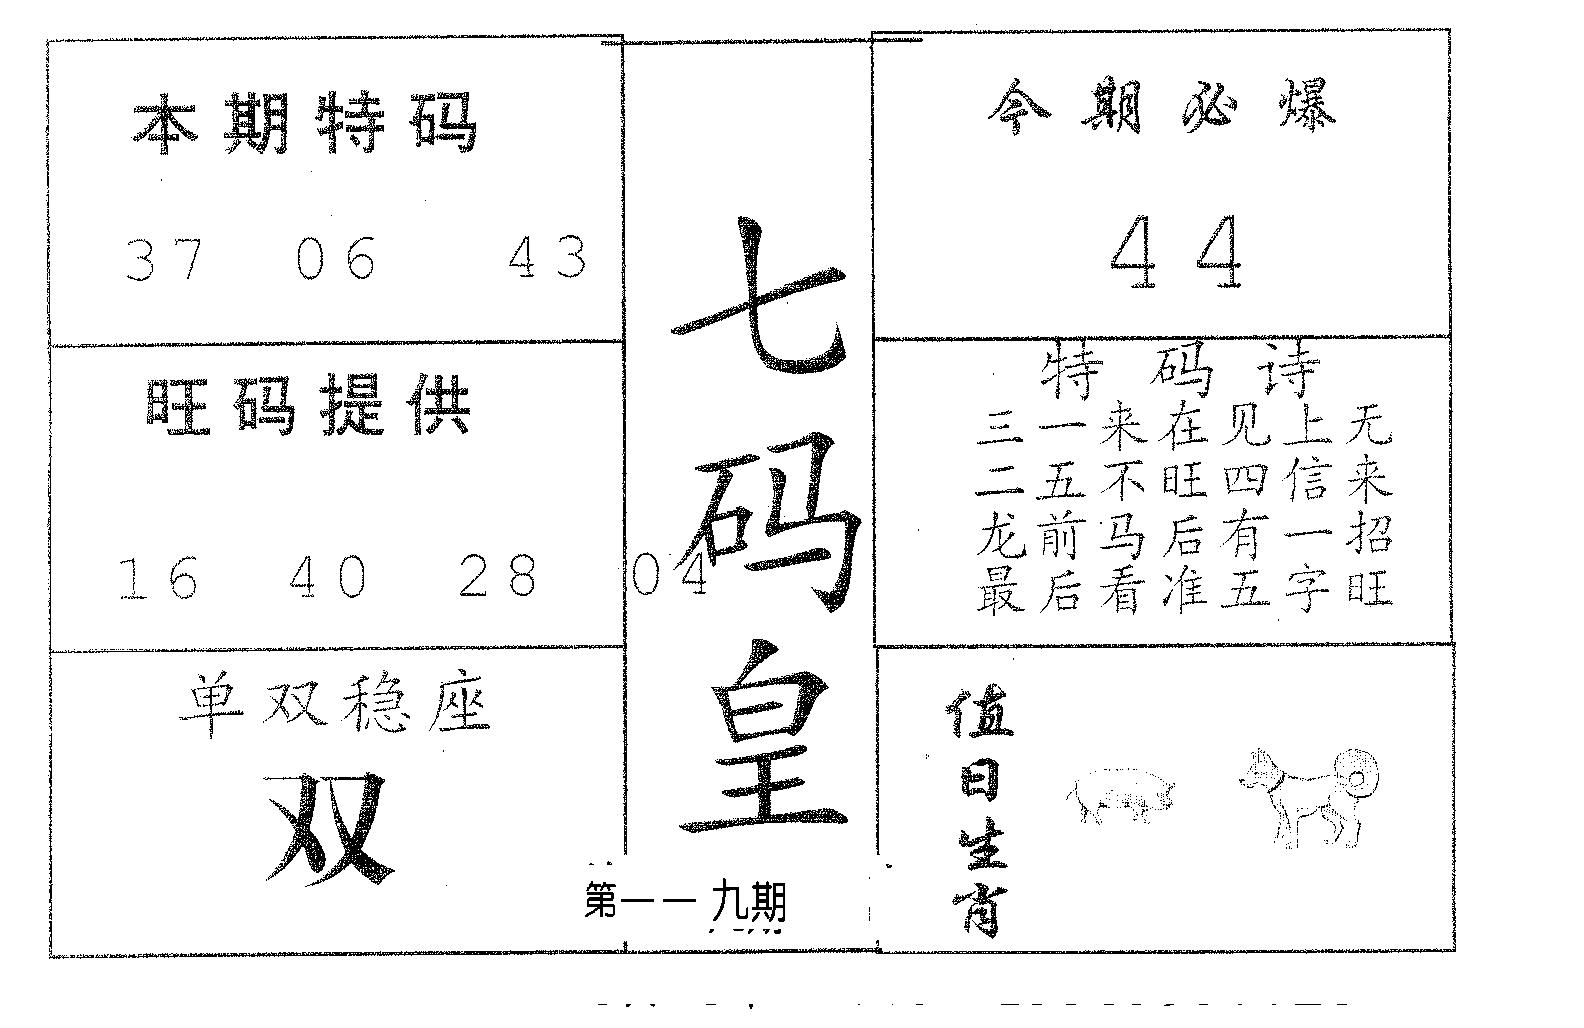 本期特码
37 06 43
旺码提供
16 40 28 04
单双稳座
双
七码皇
第一一九期
今期必爆
44
特码诗
三一来在见上无
二五不旺四信来
龙前马后有一招
最后看准五字旺
值日生肖